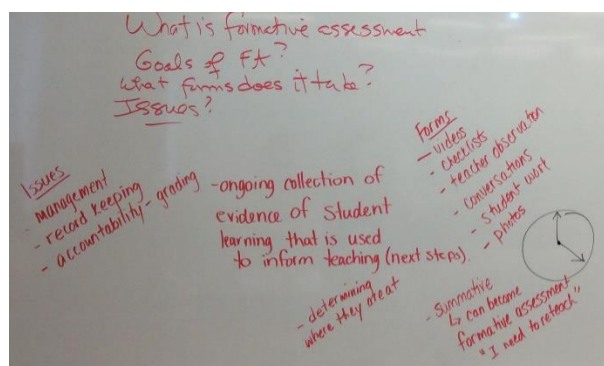 What is formative assessment
Goals of FA?
What forms does it take?
Issues?
Issues
- management
- record keeping
- accountability - grading
- ongoing collection of
evidence of student
learning that is used
to inform teaching (next steps).
- determining
where they are at
Forms
- videos
- checklists
- teacher observation
- conversations
- student work
- photos
- Summative
↳ can become
formative assessment
"I need to reteach"